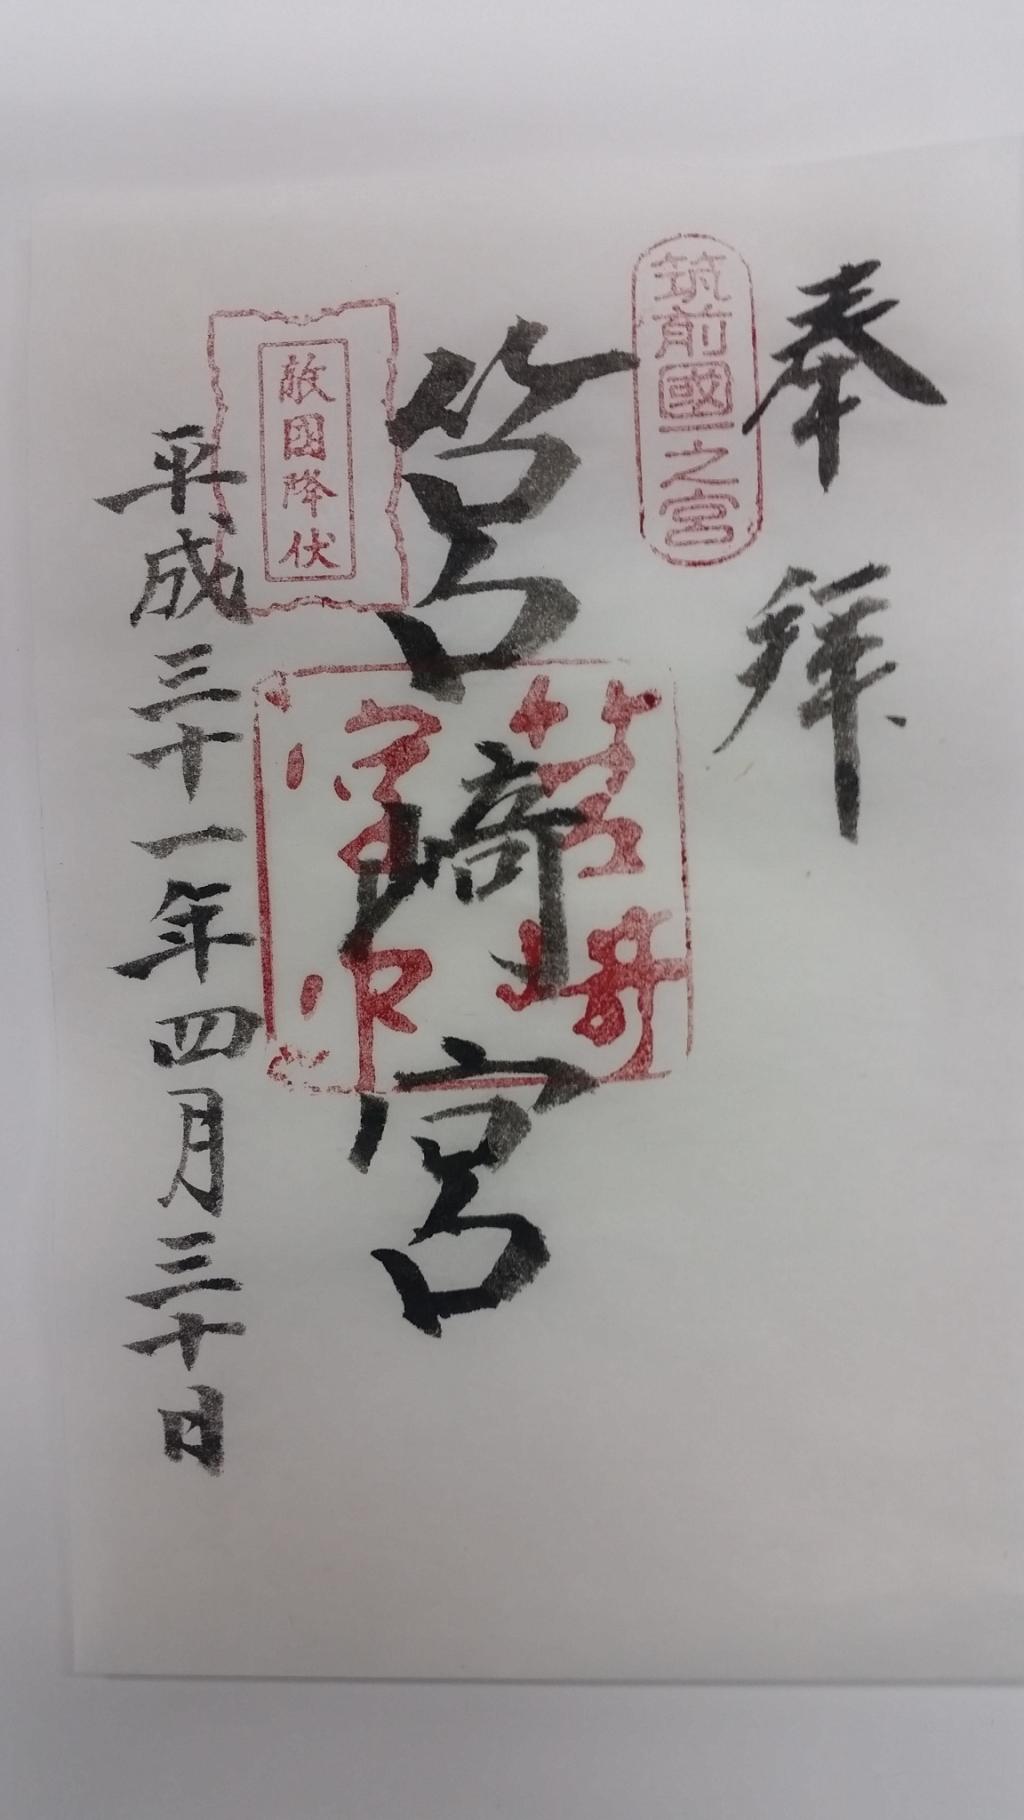 奉拜
筑前國一之宮
筥崎宮
筥崎宮印
敵国降伏
平成三十一年四月三十日